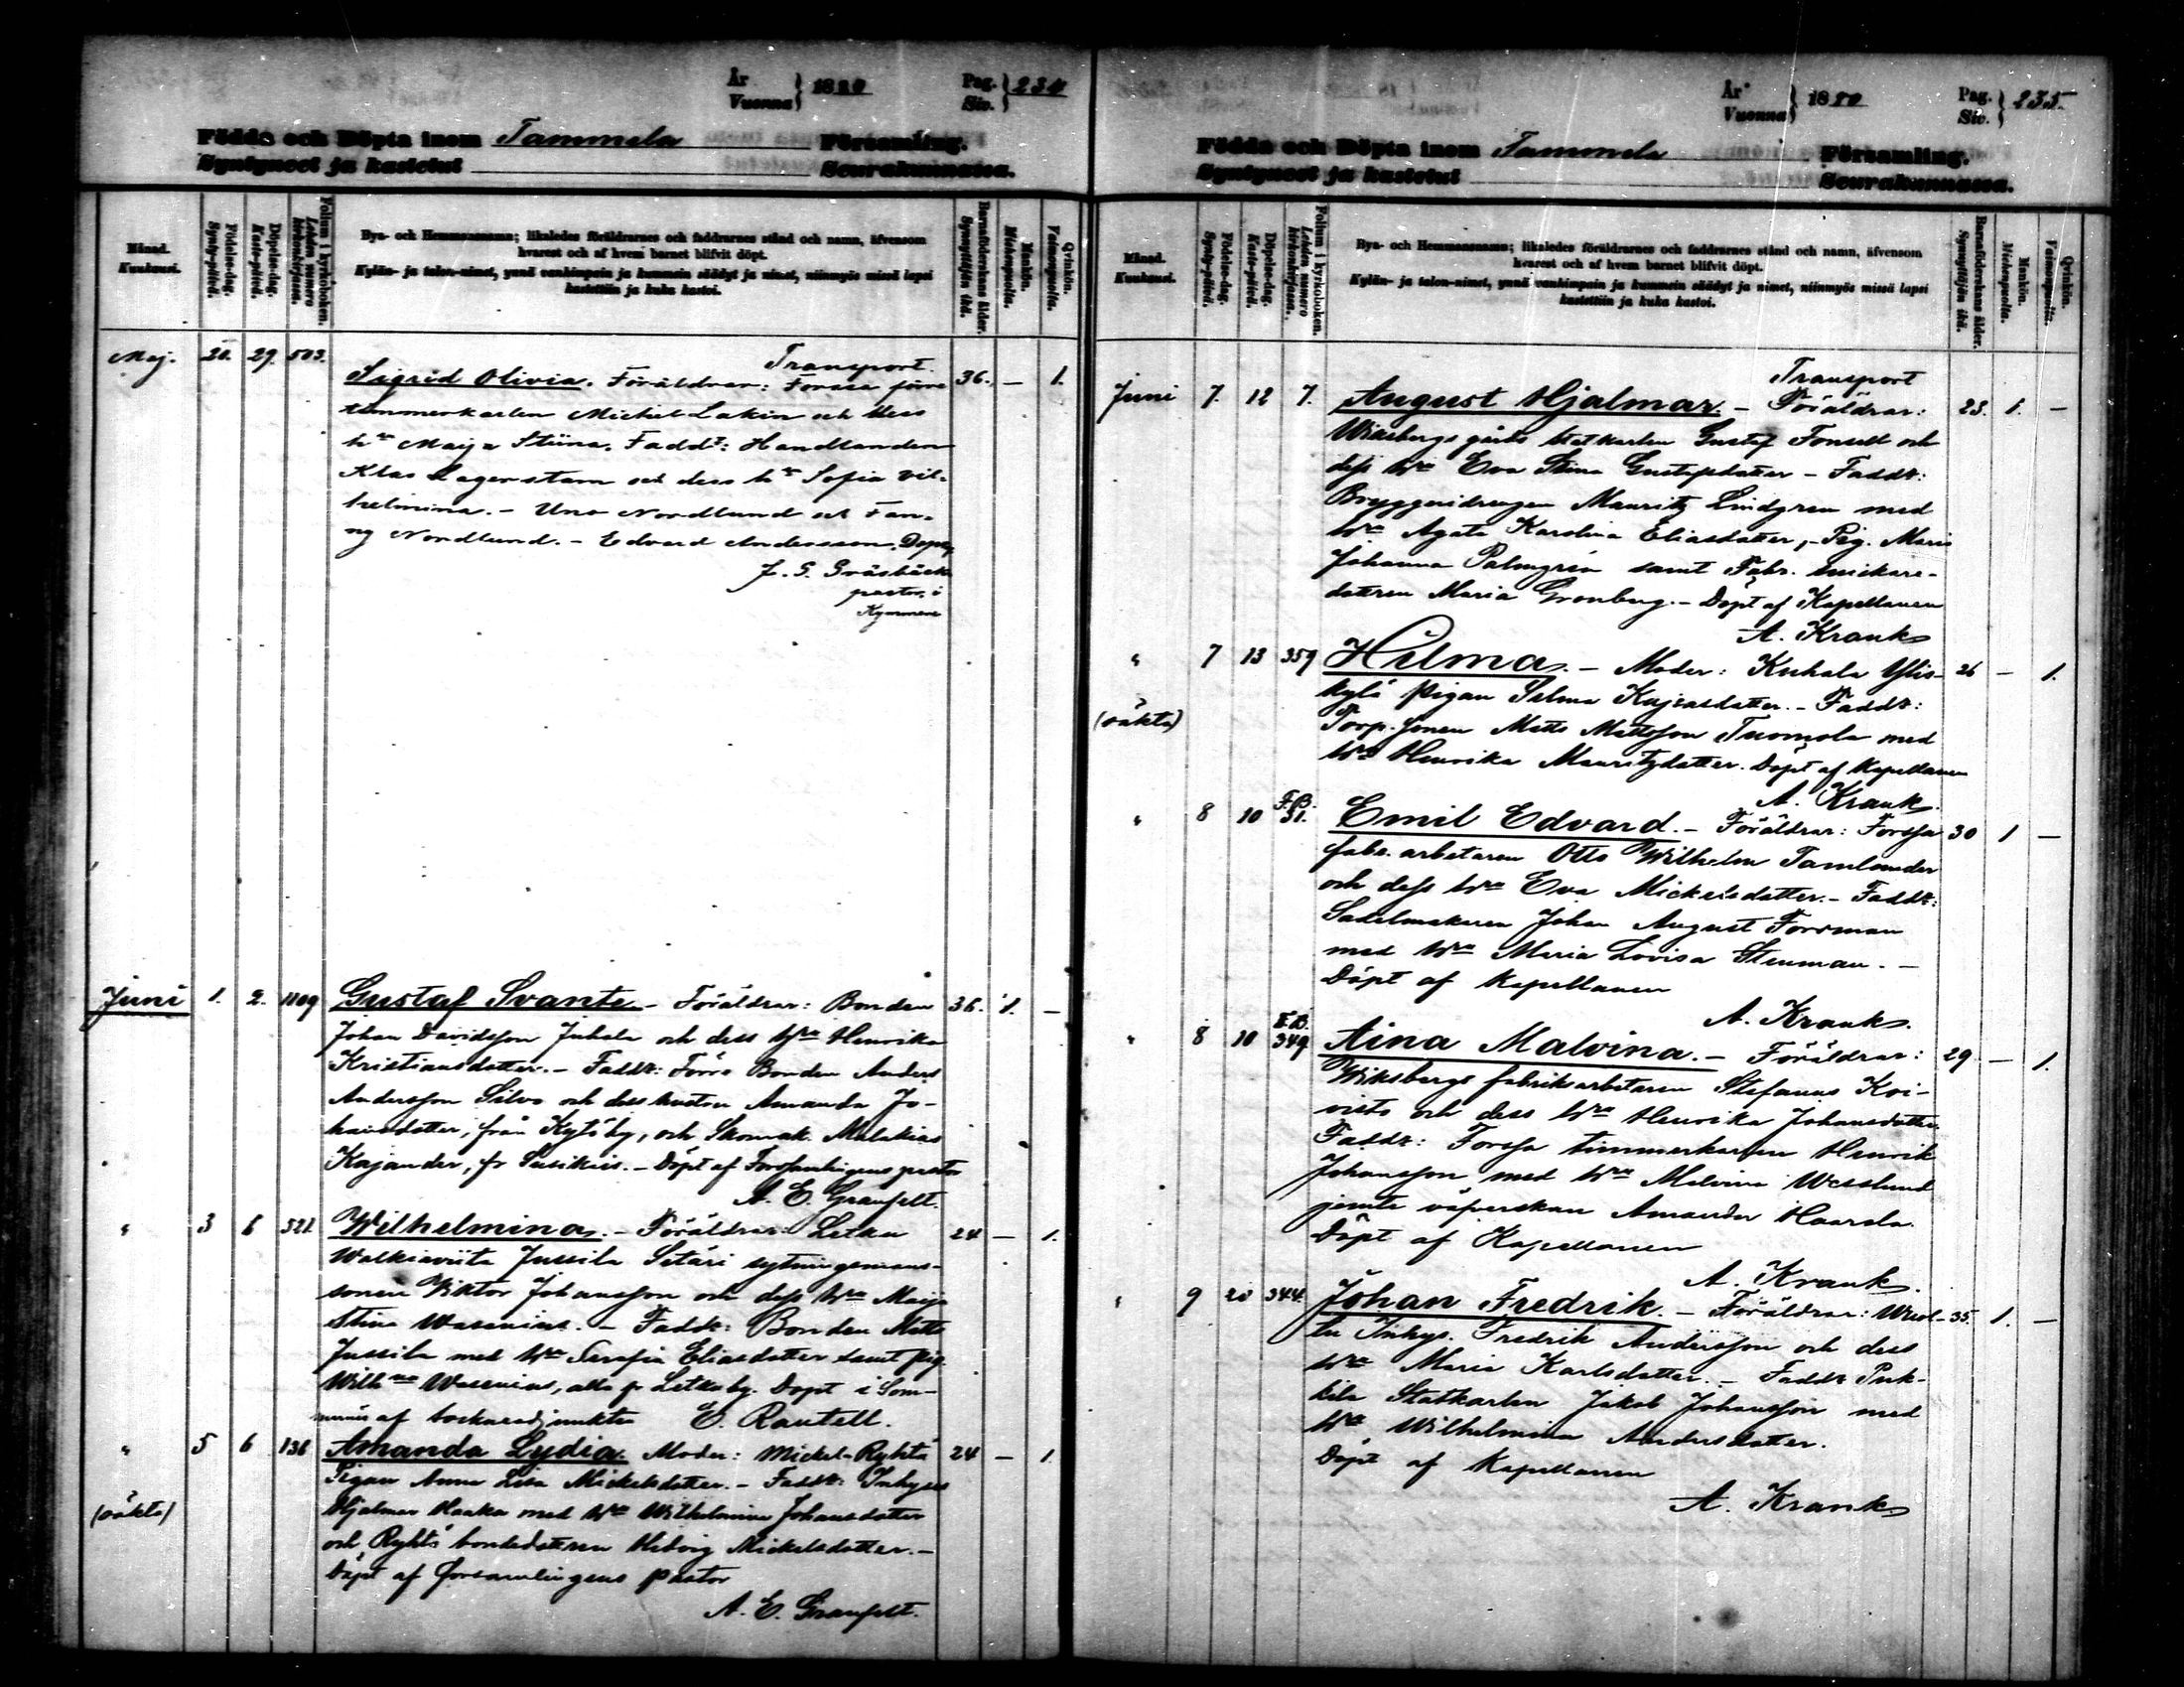 År Vuonna } 1880 Pag. Siv. } 234
Födda och Döpta inom Tammela Församling.
Syntyneet ja kastetut Seurakunnassa.
Månad. Kuukausi.
Födelse-dag. Synty-päivä.
Döpelse-dag. Kaste-päivä.
Folium i kyrkoboken. Lehden numero kirkonkirjassa.
Bya- och Hemmansnamn; likaledes föräldrarnes och faddrarnes stånd och namn, äfvensom
hvarest och af hvem barnet blifvit döpt.
Kylän- ja talon-nimet, ynnä vanhimpain ja kummein säädyt ja nimet, niinmyös missä lapsi
kastettiin ja kuka kastoi.
Barnaföderskans ålder. Synnyttäjän ikä.
Mankön. Miehenpuolta.
Qvinkön. Vaimonpuolta.
Transport.
Maj. 20. 29. 503. Sigrid Olivia. Föräldrar: Forssa förre 36. — 1.
timmerkarlen Michel Lakin och dess
h:u Maija Stiina. Fadd:r: Handlanden
Klas Lagerstam och dess h:u Sofia Vil-
helmina. - Uno Nordlund och Fan-
ny Nordlund. - Edvard Andersson. Döpt
J. G. Gräsbäck
pastor i
Kymmene
Juni 1. 2. 1109 Gustaf Svante - Föräldrar: Bonden 36. 1. —
Johan Davidsson Juhala och dess h:u Henrika
Kristiansdotter. - Faddr: Förre Bonden Anders
Andersson Silvo och dess hustru Amanda Jo-
hansdotter, från Kytöby, och Skomak. Malakias
Kajander, fr Susikais. - Döpt af Församlingens pastor
A. E. Granfelt.
" 3 6 321. Wilhelmina. - Föräldrar: Letku 24 — 1.
Walkiaviita Jussila Setäri sytningsmans-
sonen Viktor Johansson och dess h:u Maija
Stina Wasenius. - Faddr: Bonden Matts
Jussila med h:u Serafia Eliasdotter samt pig.
Wilh:na Wasenius, alla fr Letku by. Döpt i Som-
af sockneadjunkten E. Rautell.
" 5 6 136 Amanda Lydia. Moder: Mickel-Ryhtä 24 — 1.
(oäkta) Pigan Anna Lisa Mickelsdotter. - Faddr: Inhyses
Hjalmar Haaka med h:u Wilhelmina Johansdotter
och Ryhtä bondedottren Hedvig Mickelsdotter. -
Döpt af församlingens pastor
A. E. Granfelt.
År Vuonna } 1880 Pag. Siv. } 235.
Födda och Döpta inom Tammela Församling.
Syntyneet ja kastetut Seurakunnassa.
Månad. Kuukausi.
Födelse-dag. Synty-päivä.
Döpelse-dag. Kaste-päivä.
Folium i kyrkoboken. Lehden numero kirkonkirjassa.
Bya- och Hemmansnamn; likaledes föräldrarnes och faddrarnes stånd och namn, äfvensom
hvarest och af hvem barnet blifvit döpt.
Kylän- ja talon-nimet, ynnä vanhimpain ja kummein säädyt ja nimet, niinmyös missä lapsi
kastettiin ja kuka kastoi.
Barnaföderskans ålder. Synnyttäjän ikä.
Mankön. Miehenpuolta.
Qvinkön. Vaimonpuolta.
Transport
Juni 7. 12 7. August Hjalmar. - Föräldrar: 23. 1. —
Wiksbergs gårds statkarlen Gustaf Fonsell och
dess h:u Eva Stina Gustafsdotter - Faddr:
Bryggeridrengen Mauritz Lindgren med
h:u Agata Karolina Eliasdotter, - Pig. Maria
Johanna Palmgrén samt Fabr. snickare-
dottren Maria Grönberg. - Döpt af Kapellanen
A. Krank
" 7 13 359 Hilma. - Moder: Kuhala Ylis- 26 — 1.
(oäkta) kylä pigan Selma Kajsasdotter. - Faddr:
Torp. sonen Matts Mattsson Tuomola med
h:u Henrika Mauritzdotter. Döpt af Kapellanen
A. Krank.
" 8 10 F.B. 31. Emil Edvard. - Föräldrar: Forssa 30 1 —
fabr. arbetaren Otto Wilhelm Tamlander
och dess h:u Eva Mickelsdotter. - Faddr:
Sadelmakaren Johan August Forsman
med h:u Maria Lovisa Stenman. -
Döpt af Kapellanen
A. Krank.
" 8 10 F.B. 349 Aina Malvina. - Föräldrar: 29. — 1.
Wiksbergs fabriksarbetaren Stefanus Koi-
visto och dess h:u Henrika Johansdotter.
Faddr: Forssa timmerkarlen Henrik
Johansson med h:u Malvina Wesslund
jemte väfverskan Amanda Haarla.
Döpt af Kapellanen
A. Krank.
" 9 20 344. Johan Fredrik. - Föräldrar: 35. 1. —
Inhys. Fredrik Andersson och dess
h:u Maria Karlsdotter. - Faddr Puk-
kila Statkarlen Jakob Johansson med
h:u Wilhelmina Andersdotter.
Döpt af Kapellanen
A. Krank